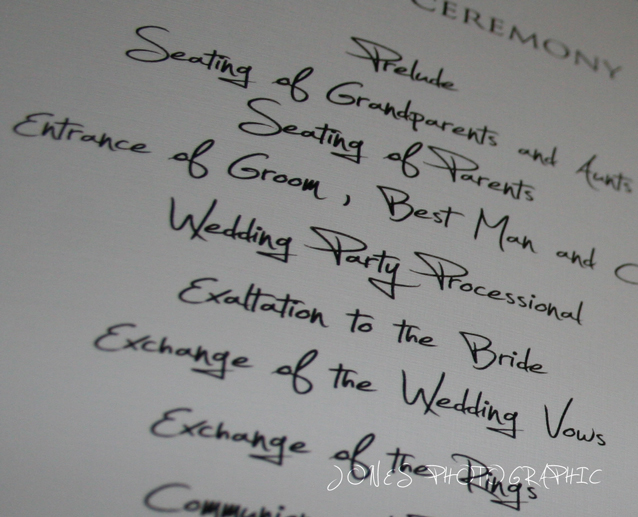 CEREMONY
Prelude
Seating of Grandparents and Aunts
Seating of Parents
Entrance of Groom, Best Man and
Wedding Party Processional
Exaltation to the Bride
Exchange of the Wedding Vows
Exchange of the Rings
JONES PHOTOGRAPHIC